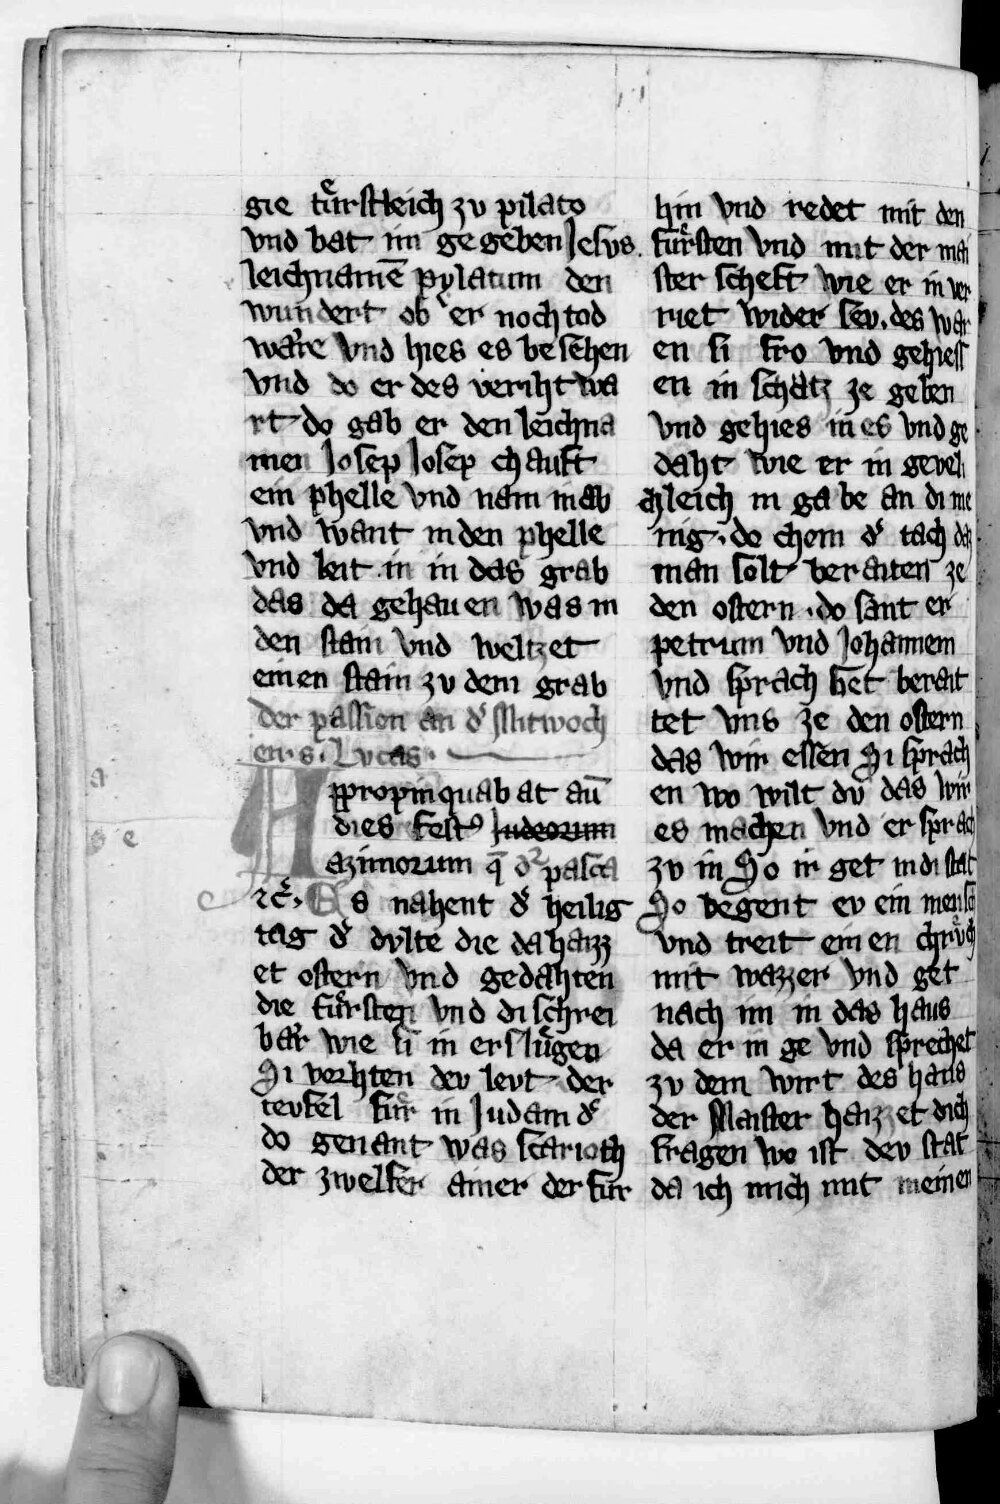 gie tuͤrstleich zv pilato
vnd bat im gegeben Jesvs
leichnamē pylatum den
wundert ob er noch tod
waͤre vnd hies es besehen
vnd do er des veriht wa
rt do gab er den leichna
men Josep Josep chauft
ein phelle vnd nam in ab
vnd want in den phelle
vnd leit in in das grab
das da gehauen was in
den stain vnd weltzet
einen stain zv dem grab
der passion an dˢ Mitwoch
en. s. Lvcas.
Appropinquabat aū
dies festꝰ Judeorum
azimorum q̄ dʳ pasca
⁊cˢ. Es nahent dˢ heilig
tag dˢ dvlte die da haizz
et ostern vnd gedahten
die fuͤrsten vnd di schrei
baͤr wie si in erslugen
Si vorhten dev levt der
tevfel fuͤr in Judam dˢ
do genant was scarioth
der zwelfer ainer der fur
hin vnd redet mit den
fuͤrsten vnd mit der mai
ster scheft wie er in ver
riet wider sev. des war
en si fro vnd gehiess
en in schatz ze geben
vnd gehies in es vnd ge
daht wie er in geveli
chleich in gabe an di me
nig. do chom dˢ tach daz
man solt beraiten ze
den ostern. do sant er
petrum vnd Johannem
vnd sprach get berait
tet vns ze den ostern
das wir essen Si sprach
en wo wilt dv das wir
es machen vnd er sprach
zv in So ir get in di stat
So begent ev ein mensch
vnd treit einen chrvͦch
mit wazzer vnd get
nach im in das haus
da er in ge vnd sprechet
zv dem wirt des haus
der Maister haizzet dich
fragen wo ist dev stat
da ich mich mit meinen